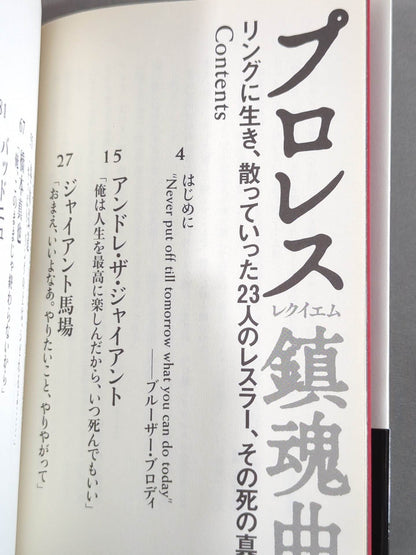 プロレス鎮魂曲
レクイエム
リングに生き、散っていった23人のレスラー、その死の真
Contents
4
はじめに
"Never put off till tomorrow what you can do today"
――ブルーザー・ブロディ
15
アンドレ・ザ・ジャイアント
「俺は人生を最高に楽しんだから、いつ死んでもいい」
27
ジャイアント馬場
「おまえ、いいよなあ。やりたいこと、やりやがって」
67
橋本真也
81
バッドニュ